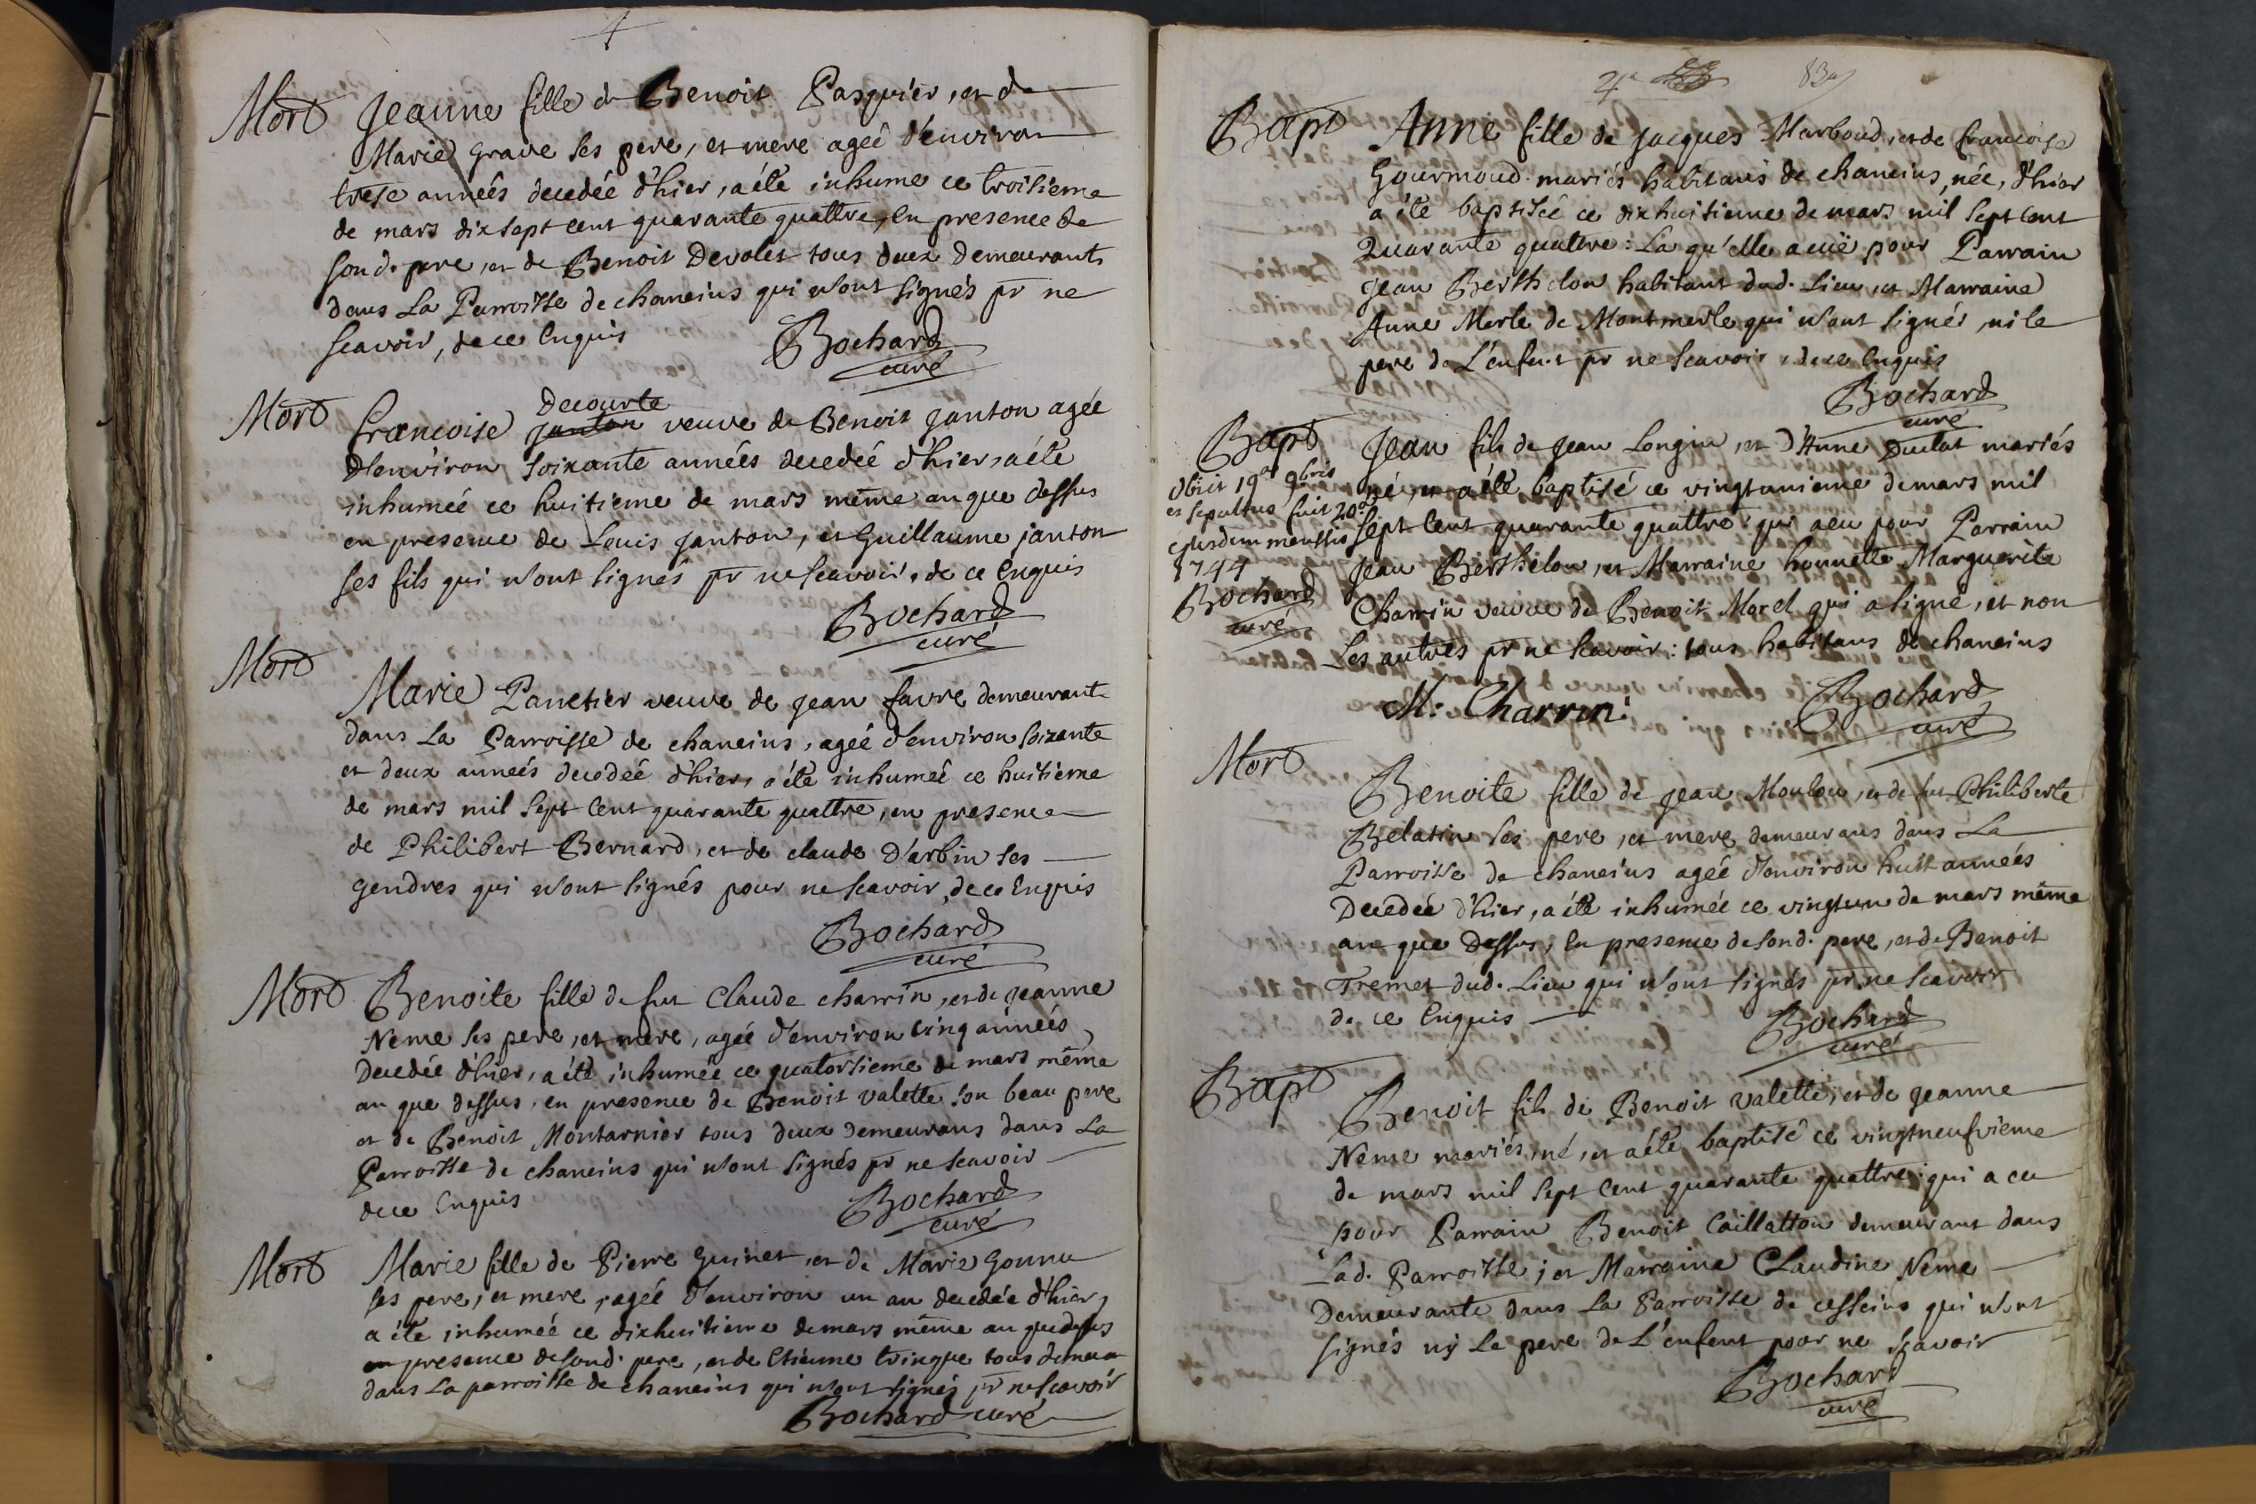 Mort Jeanne fille de Benoit Pasquier, et de
Marie Grave ses pere, et mere ageé d'environ
trese anneés decedée d'hier, a été inhume ce troisieme
de mars dix sept cent quarante quattre, en presence de
sond. pere, et de Benoit Devolet tous deux demeurants
dans La Parroisse de chaneins qui n'ont signés pr ne
scavoir, de ce Enquis
Bochard
curé
Mort Francoise Decourte veuve de Benoit Janton agée
d'environ soixante anneés decedeé d'hier, a été
inhumeé ce huitieme de mars même an que dessus
en presence de Louis Janton, et Guillaume janton
ses fils qui n'ont signés pr ne scavoir, de ce Enquis
Bochard
curé
Mort
Marie Panetier veuve de Jean favre demeurante
dans La Parroisse de chaneins, ageé d'environ soixante
et deux anneés decedeé d'hier, a été inhumeé ce huitieme
de mars mil sept cent quarante quattre, en presence
de Philibert Bernard, et de claude D'arbin ses
gendres qui n'ont signés pour ne scavoir, de ce Enquis
Bochard
curé
Mort Benoite fille de fut Claude charrin, et de Jeanne
Neme ses pere, et mere, ageé d'environ cinq anneés
Decedée d'hier, a été inhumeé ce quatorsieme de mars même
an que dessus, en presence de Benoit valette son beau pere
et de Benoit Montarnier tous deux demeurans dans La
Parroisse de chaneins qui n'ont signés pr ne scavoir
de ce Enquis
Bochard
curé
Mort Marie fille de Pierre Guinet, et de Marie Gonnu
ses pere, et mere, ageé d'environ un an decedée d'hier,
a été inhumeé ce dixhuitieme de mars même an que dessus
en presence de sond. pere, et de Etienne tringue tous demeur
dans La parroisse de chaneins qui n'ont signés pr ne scavoir
Bochard curé
83
Bapt Anne fille de Jacques Marboud, et de francoise
Gourmoud mariés habitans de chaneins, née, d'hier
a été baptiseé ce dixhuitieme de mars mil sept cent
Quarante quattre: La qu'elle a euë pour Parrain
Jean Berthelon habitant dud. Lieu, et Marraine
Anne Merle de Montmerle qui n'ont signés, ni le
pere de L'enfent pr ne scavoir, de ce Enquis
Bochard
curé
Bapt Jean fils de Jean Longin, et d'Anne Duclat mariés
né, et a été baptisé ce vingtunieme de mars mil
sept cent quarante quattre: qui a eu pour Parrain
Jean Berthelon, et Marraine honnette Marguerite
Charrin veuve de Benoit Morel qui a signé, et non
Les autres pr ne scavoir: tous habitans de chaneins
obiit 19a 9bris
et sepultus fuit 20a
ejusdem menssis
1744
Bochard
curé
M: Charrin
Bochard
curé
Mort
Benoite fille de Jean Moulon, et de fut Philiberte
Belatin ses pere, et mere demeurans dans La
Parroisse de chaneins ageé d'environ huit anneés
Decedeé d'hier, a été inhumeé ce vingtun de mars même
an que Dessus, En presence de sond. pere, et de Benoit
Tremet dud. Lieu qui n'ont signés pr ne scavoir
de ce Enquis
Bochard
curé
Bapt
Benoit fils de Benoit valette, et de Jeanne
Neme mariés, né, et a été baptisé ce vingtneufvieme
de mars mil sept cent quarante quattre: qui a eu
pour Parrain Benoit Caillatton demeurant dans
Lad. Parroisse; et Marraine Claudine Neme
Demeurante dans La Parroisse de cesseins qui n'ont
signés ny Le pere de L'enfent pour ne scavoir
Bochard
curé